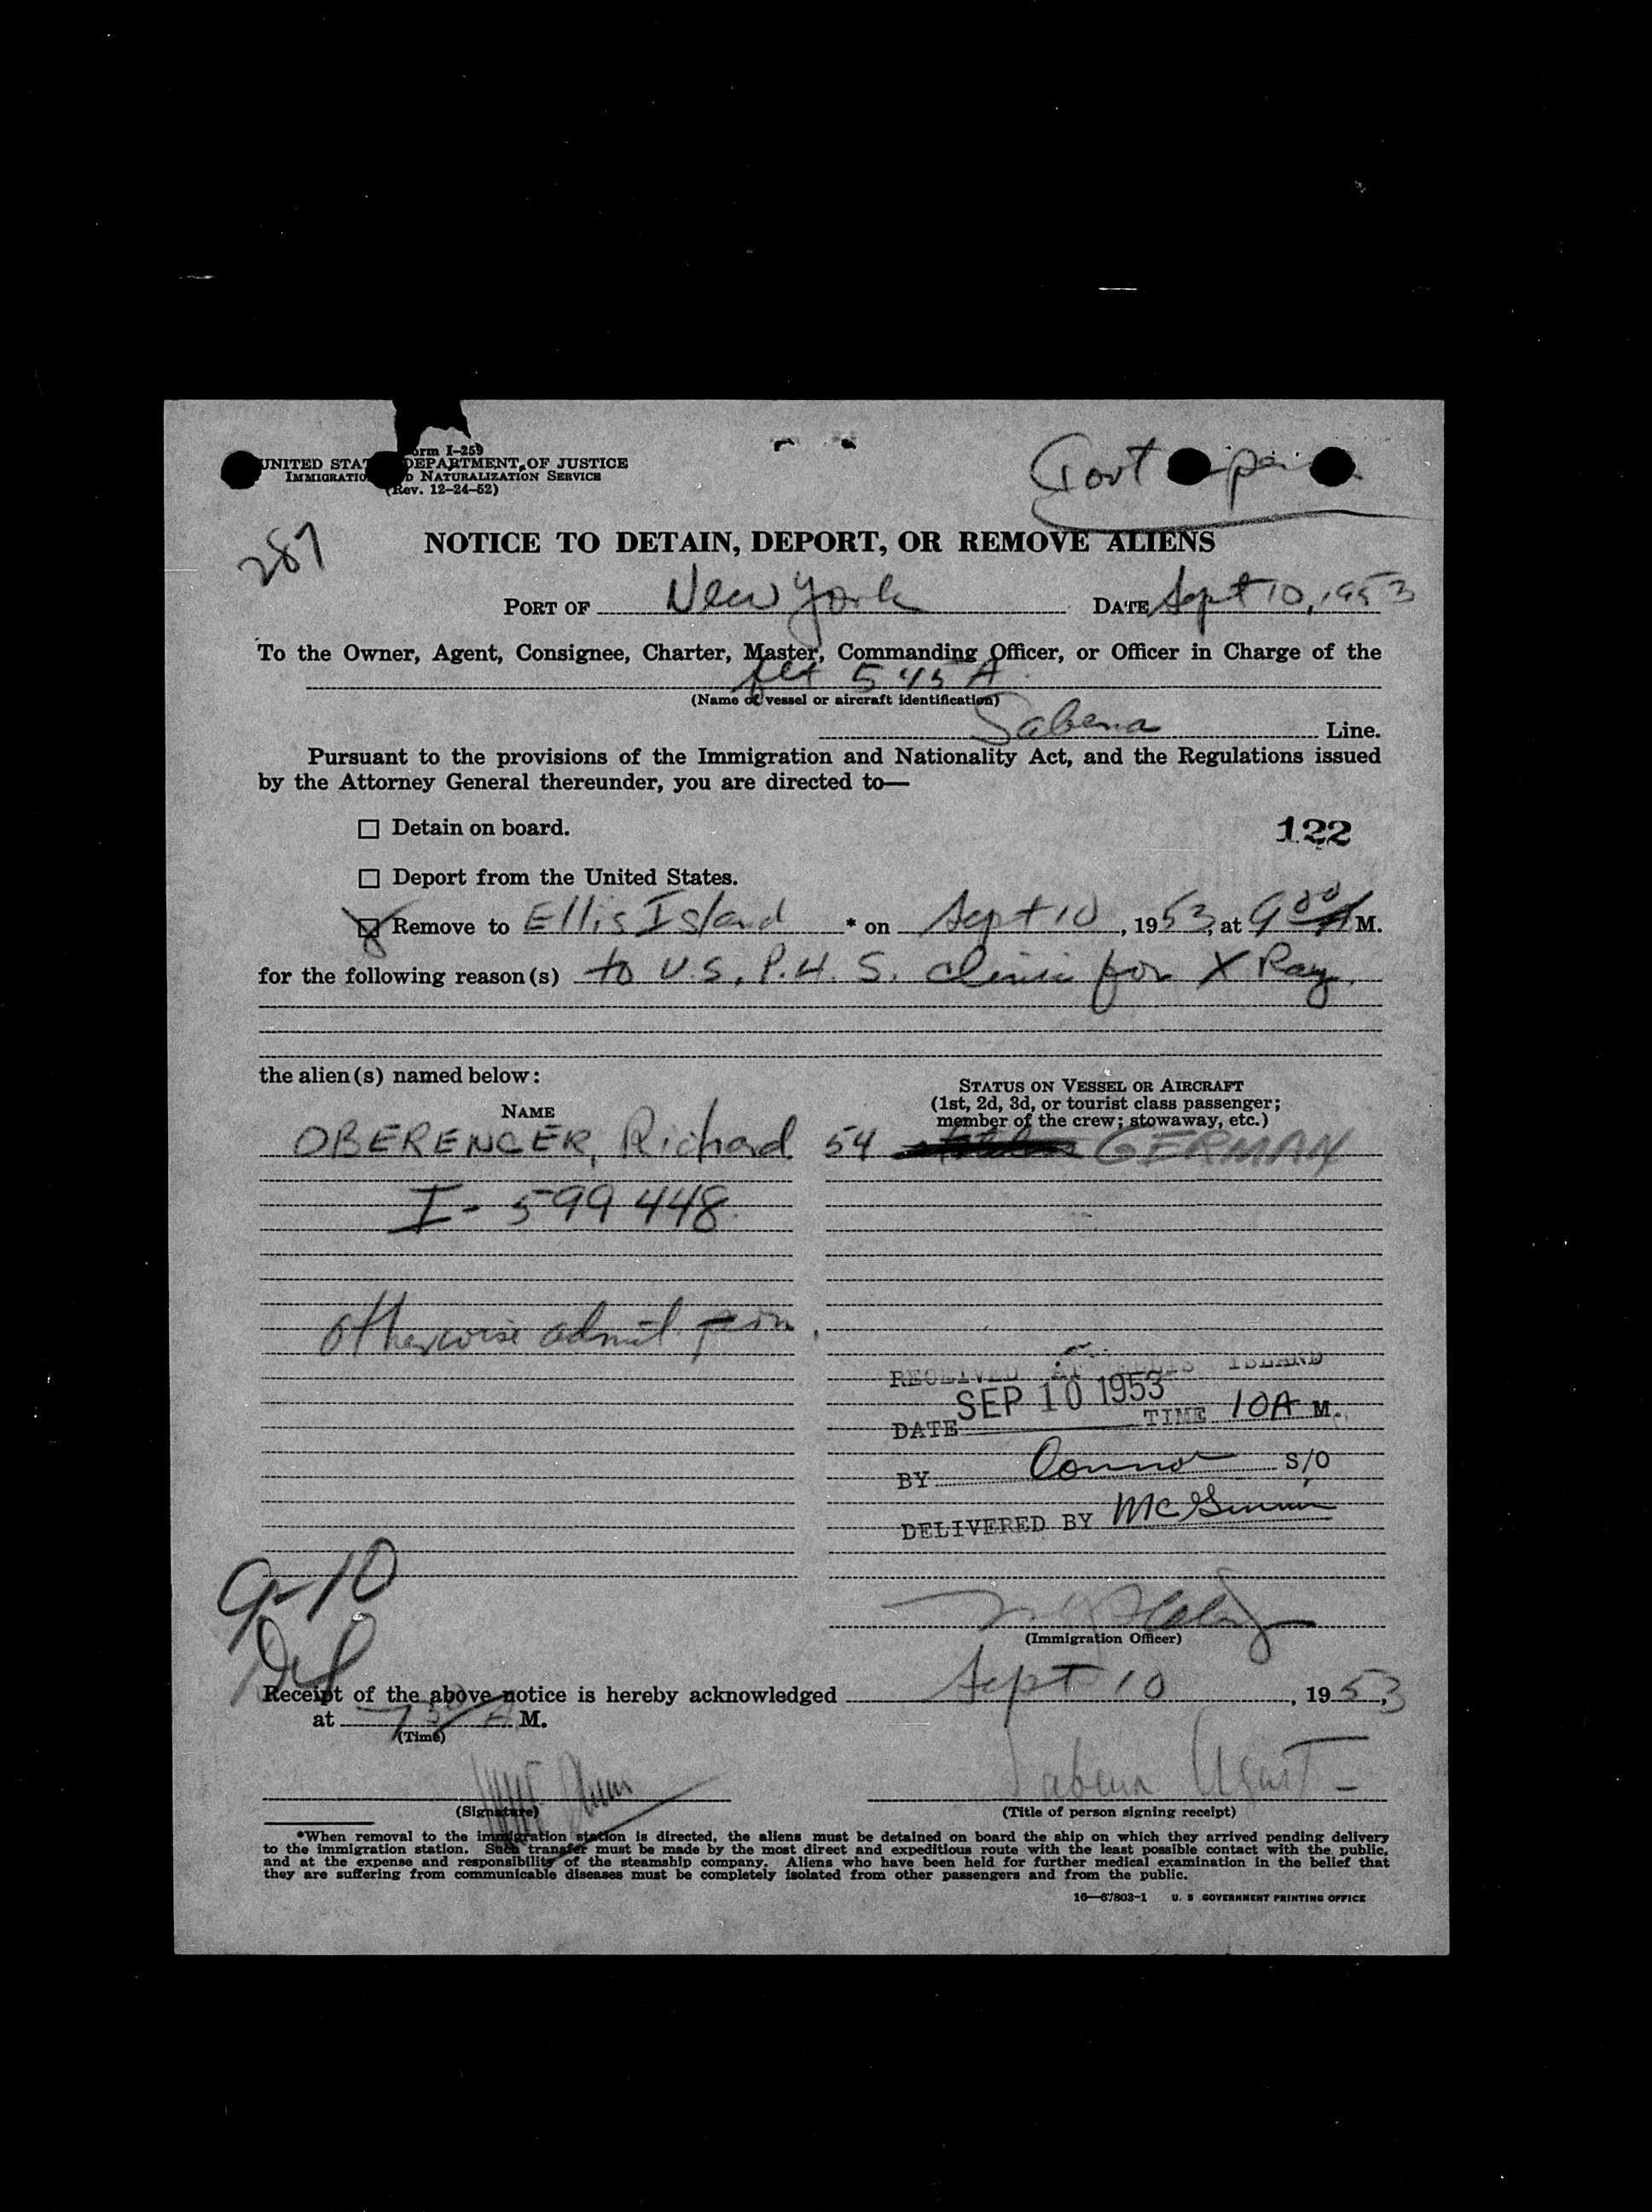 Form I-259
UNITED STATES DEPARTMENT OF JUSTICE
IMMIGRATION AND NATURALIZATION SERVICE
(Rev. 12-24-52)
Govt
287
NOTICE TO DETAIN, DEPORT, OR REMOVE ALIENS
PORT OF New York DATE Sept 10, 1953
To the Owner, Agent, Consignee, Charter, Master, Commanding Officer, or Officer in Charge of the
flt 545 A
(Name of vessel or aircraft identification)
Sabena Line.
Pursuant to the provisions of the Immigration and Nationality Act, and the Regulations issued
by the Attorney General thereunder, you are directed to—
☐ Detain on board.
122
☐ Deport from the United States.
☒ Remove to Ellis Island * on Sept 10, 1953, at 9 00 A M.
for the following reason(s) to U.S. P.H.S. clinic for X Ray.
the alien(s) named below:
STATUS ON VESSEL OR AIRCRAFT
(1st, 2d, 3d, or tourist class passenger;
member of the crew; stowaway, etc.)
NAME
OBERENCER, Richard 54 GERMAN
I- 599 448
otherwise admit
RECEIVED AT ELLIS ISLAND
DATE SEP 10 1953 TIME 10A M.
BY Connor S/O
DELIVERED BY McGinnis
9-10
(Immigration Officer)
Receipt of the above notice is hereby acknowledged Sept 10, 1953,
at 7 30 A M.
(Time)
Sabena Agent -
(Signature) (Title of person signing receipt)
*When removal to the immigration station is directed, the aliens must be detained on board the ship on which they arrived pending delivery
to the immigration station. Such transfer must be made by the most direct and expeditious route with the least possible contact with the public,
and at the expense and responsibility of the steamship company. Aliens who have been held for further medical examination in the belief that
they are suffering from communicable diseases must be completely isolated from other passengers and from the public.
16—67803-1 U. S GOVERNMENT PRINTING OFFICE